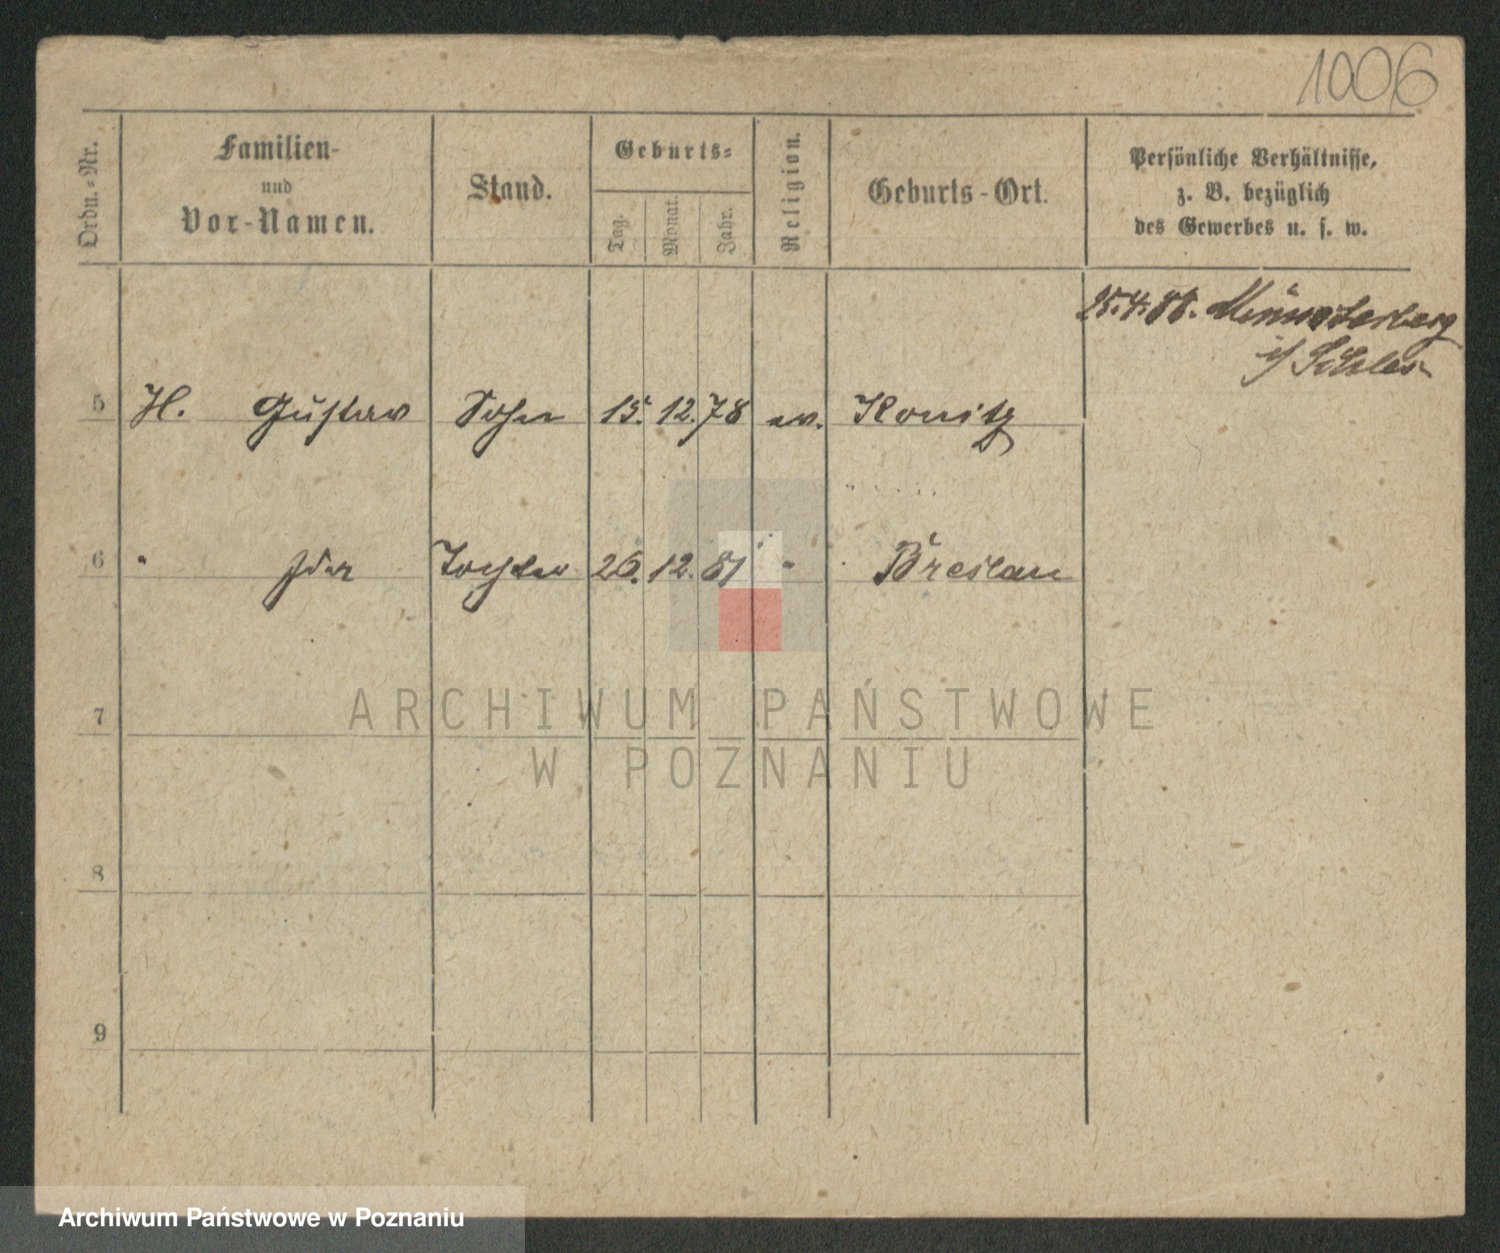 1006
Ordn.-Nr.
Familien-
und
Vor-Namen.
Stand.
Geburts-
Tag.
Monat.
Jahr.
Religion.
Geburts-Ort.
Persönliche Verhältnisse,
z. B. bezüglich
des Gewerbes u. s. w.
25.4.88. Münsterberg
i/ Schles
5 H. Gustav Sohn 15. 12. 78 ev. Konitz
6 " Ida Tochter 26. 12. 81 " Breslau
7
ARCHIWUM PAŃSTWOWE
W POZNANIU
8
9
Archiwum Państwowe w Poznaniu